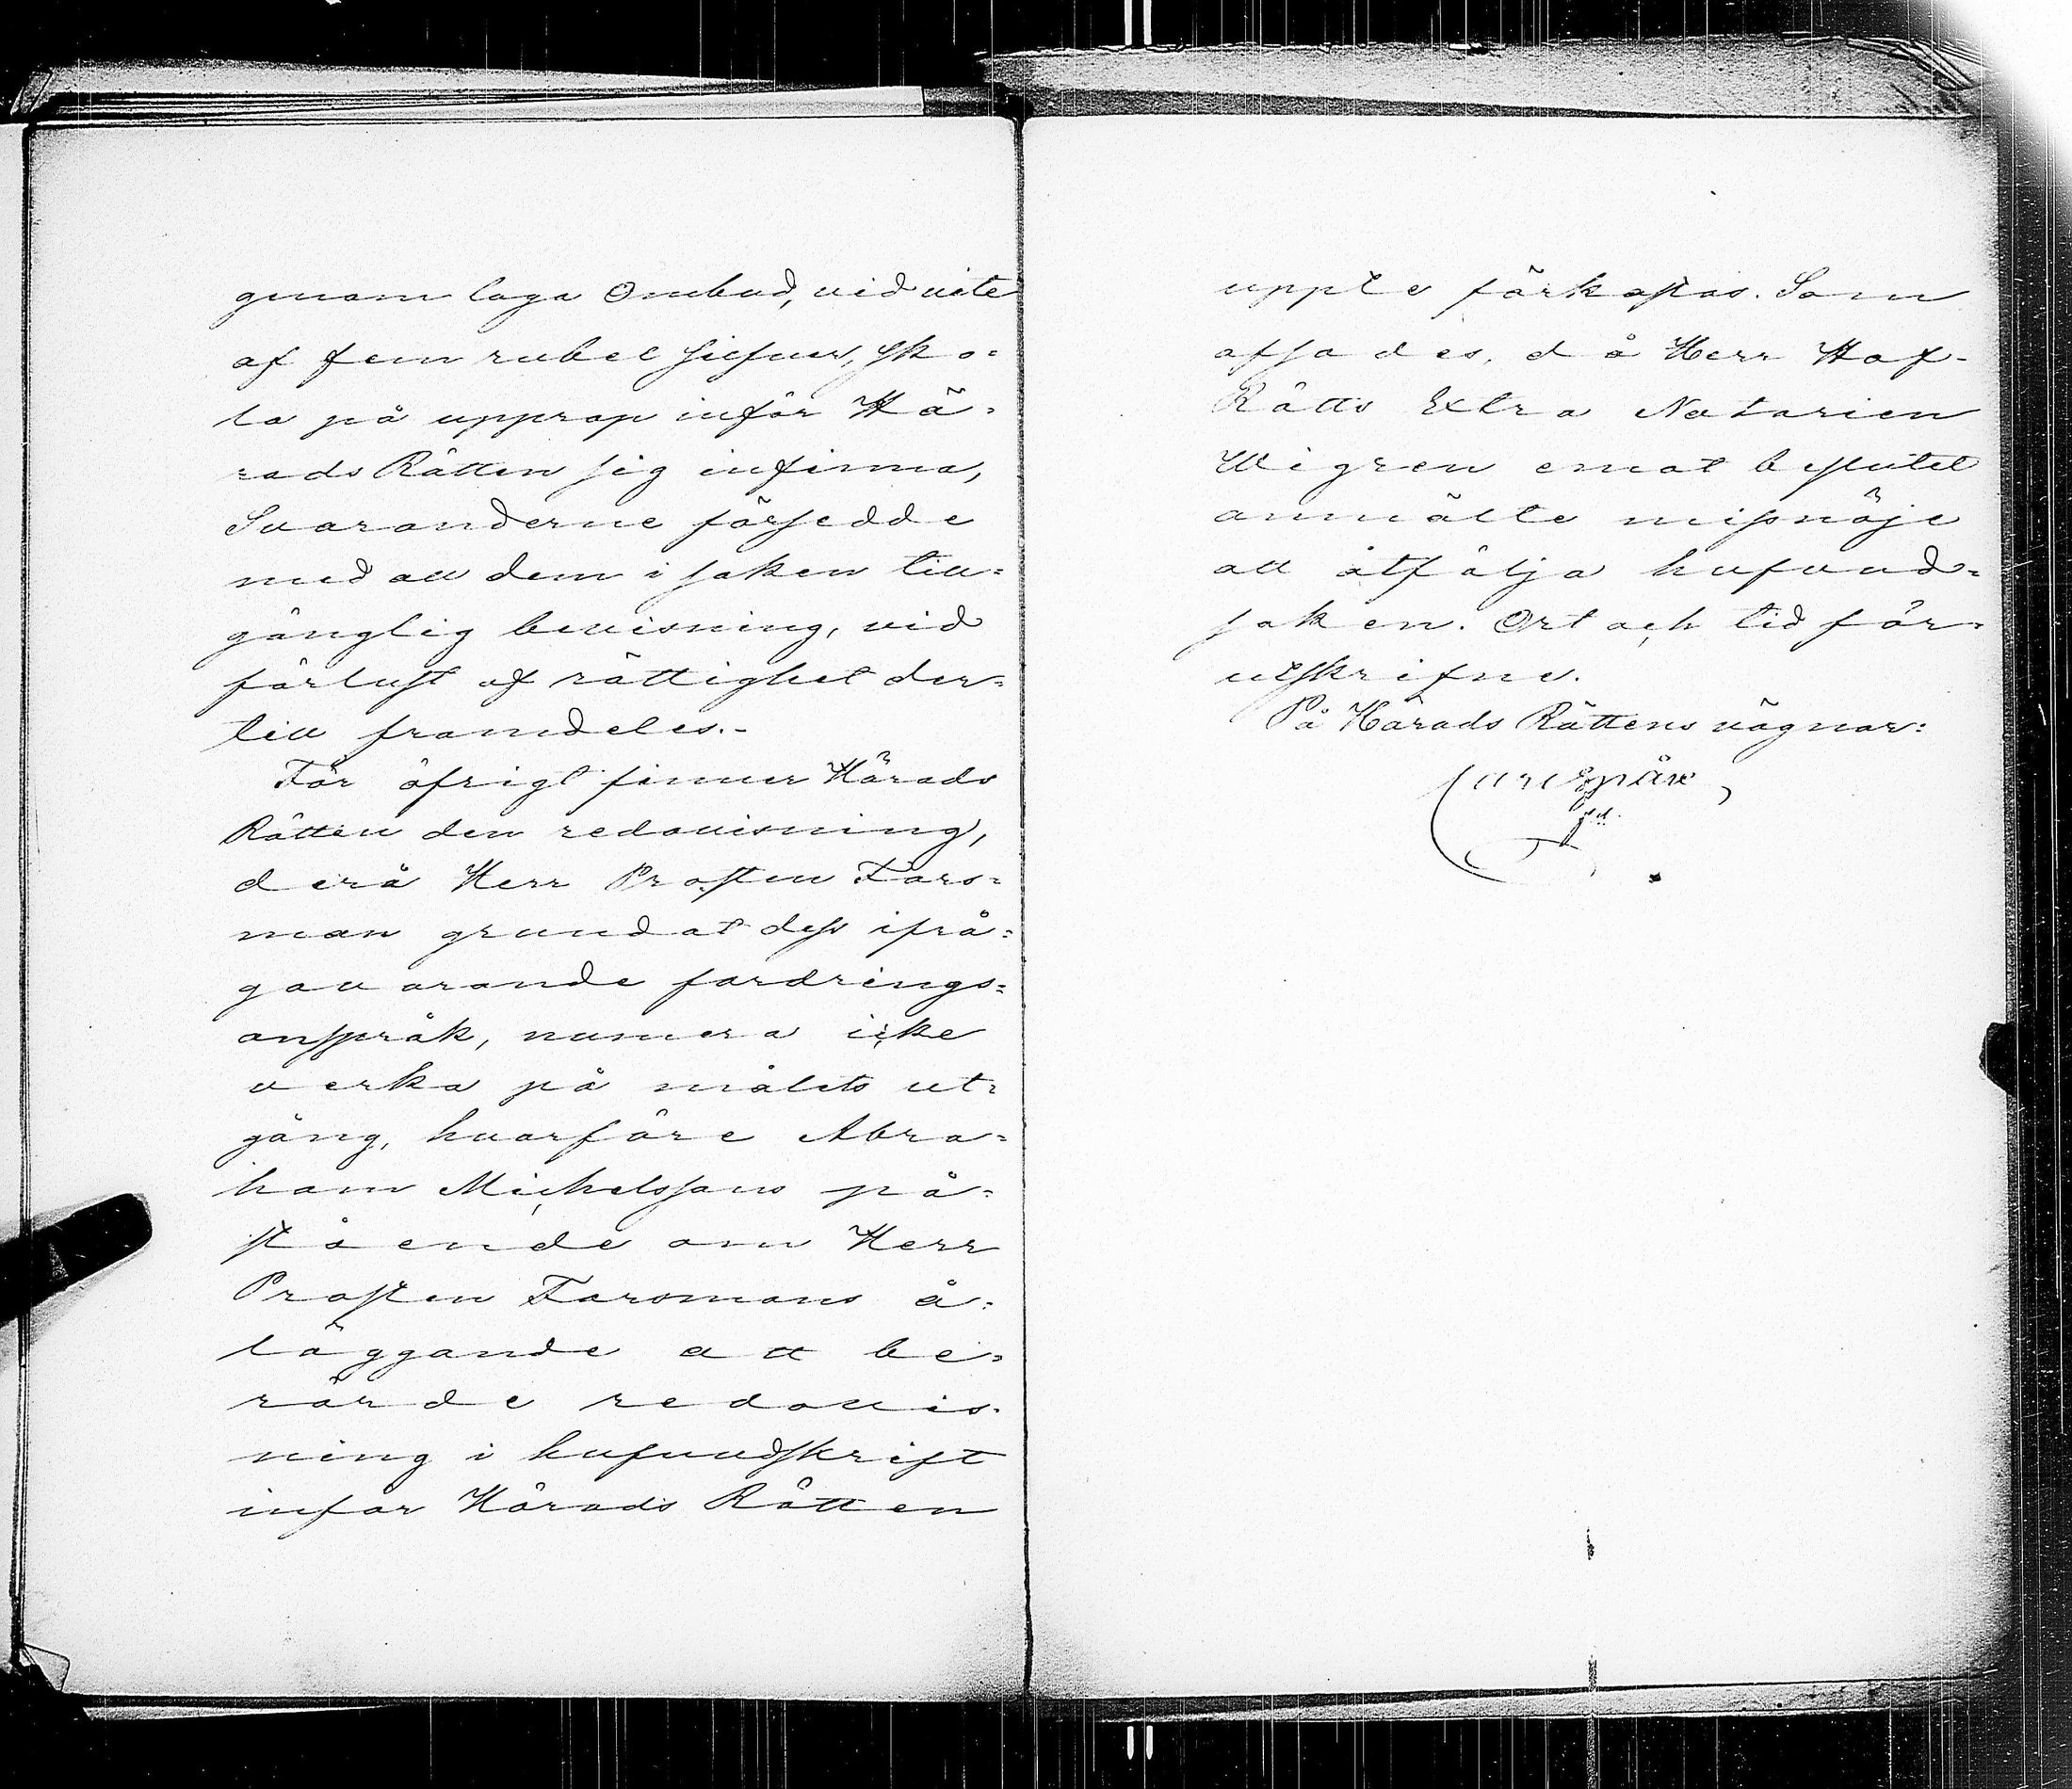 genom laga Ombud, vid vite
af fem rubel silfver, sko=
la på upprop inför Hä=
rads Rätten sig infinna,
Svaranderne försedde
med all dem i saken till=
gänglig bevisning, vid
förlust af rättighet der=
till framdeles.-
För öfrigt finner Härads
Rätten den redovisning,
derå Herr Prosten Fors=
man grundat dess ifrå=
gavarande fordrings=
anspråk, numera icke
verka på målets ut=
gång, hvarföre Abra=
ham Michelssons på=
stående om Herr
Prosten Forsmans å=
läggande att be=
rörde redovis-
ning i hufvudskrift
inför Härads Rätten
uppte förkastas. Som
afsades, då Herr Hof-
Rätts Extra Notarien
Wigren emot beslutet
anmälte missnöje
att åtfölja hufvud=
saken. Ort och tid för=
utskrifne.
På Härads Rättens vägnar: